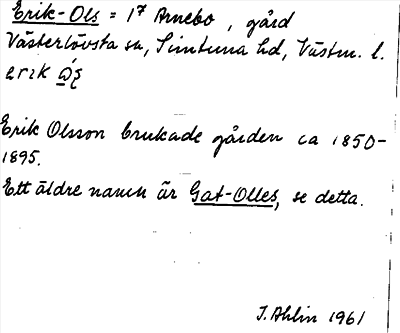 Erik-Ols = 1⁷ Arnebo, gård
Västerlövsta sn, Simtuna hd, Västm. l.
erik
Erik Olsson brukade gården ca 1850-
1895.
Ett äldre namn är Gat-Olles, se detta.
J. Ahlin 1961